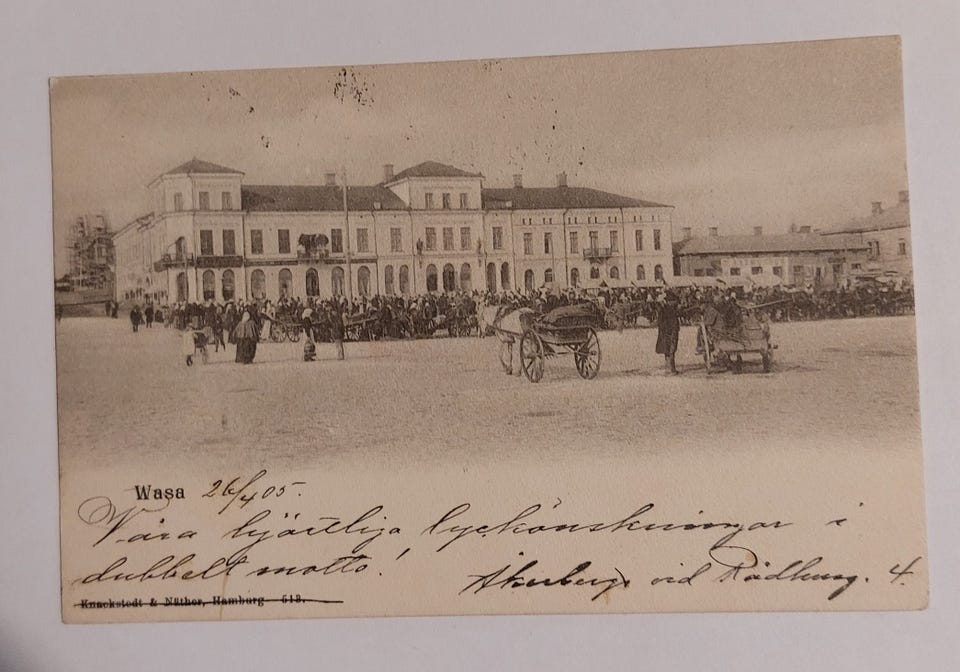 Wasa 26/4 05.
Våra hjärtliga lyckönskningar i
dubbelt motto!
Åkerbergs vid Rådhusg. 4
Knackstedt & Näther, Hamburg 513.